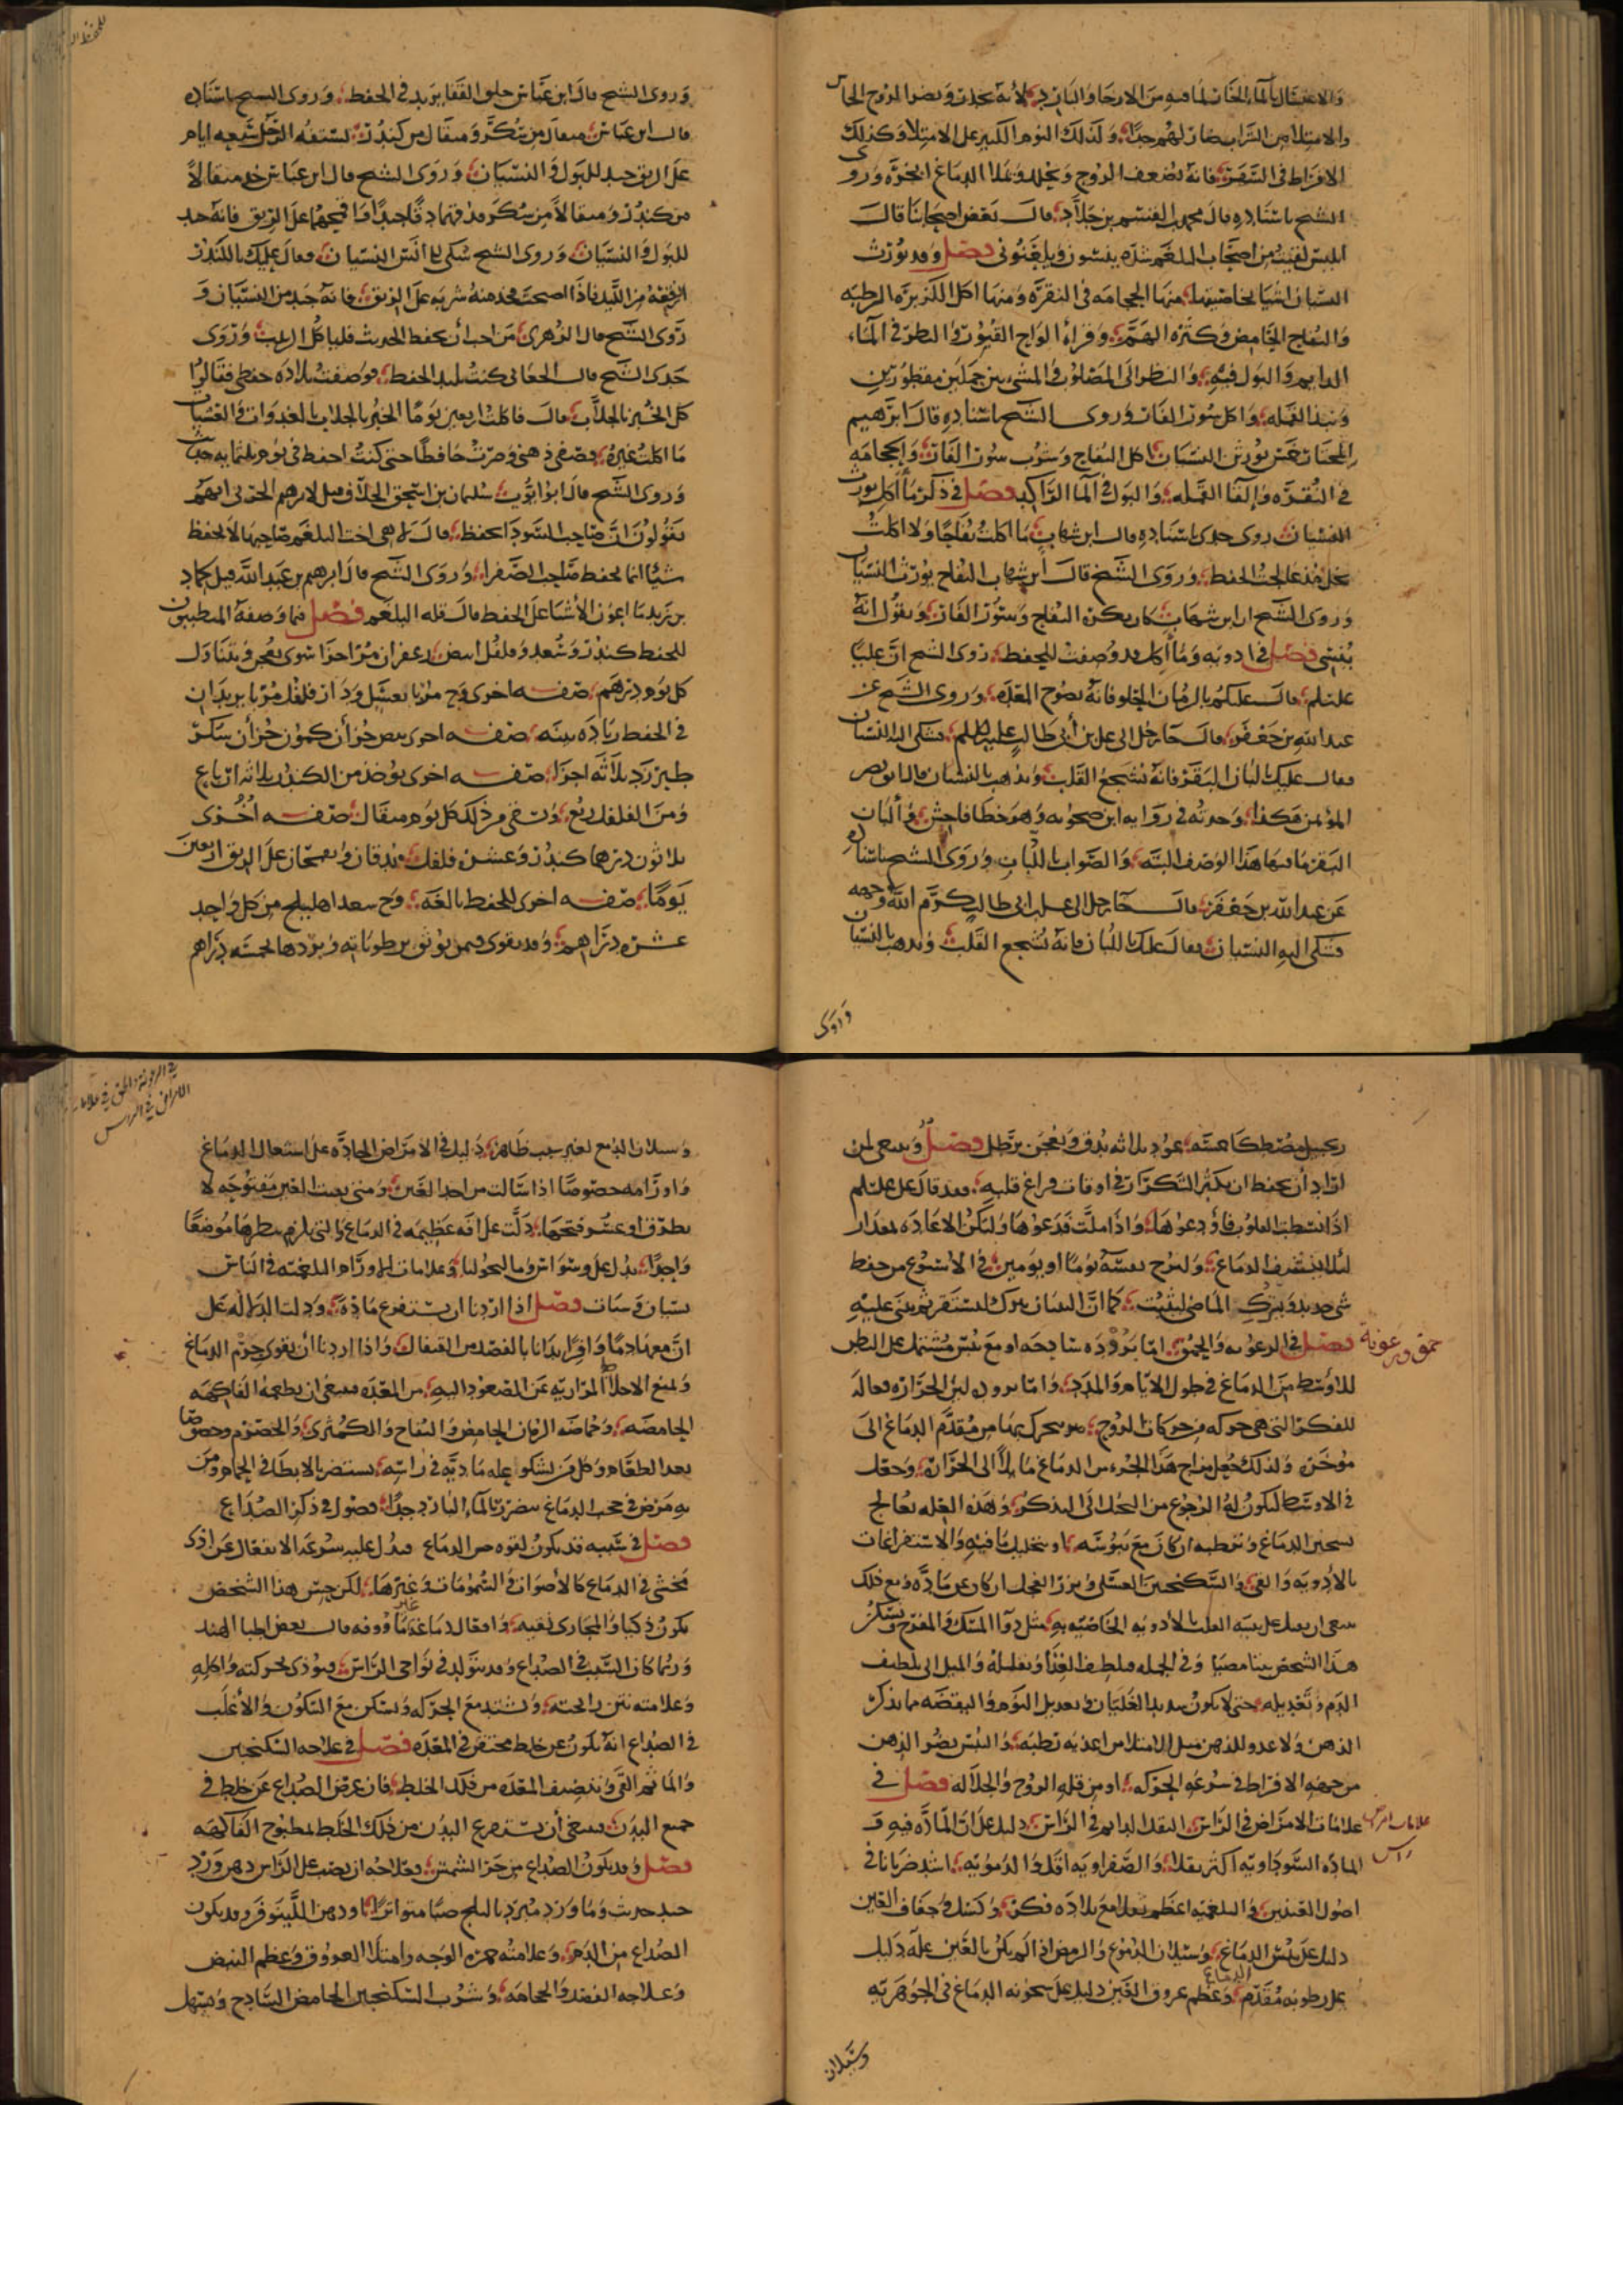 والاغتسال بالماء الحار لما فيه من الارخا والبارد لأنه يخدر ويضر الروح الحاس
والامتلا من الشراب ضار لهم جدا ولذلك النوم الكثير على الامتلا وكذلك
الافراط في السهر فانه يضعف الروح ويحلله ويملا الدماغ ابخره وروى
الشيخ باسناده قال محمد القسم بن خلاد قال بعض اصحابنا قال
ابليس لقيت من اصحاب البلغم شده ينسون ويلعنونى فصل وقد يورث
النسيان اشيا بخاصيتها منها الحجامه في النقره ومنها اكل الكزبره الرطبه
والتفاح الحامض وكثره الهم وقراة الواح القبور والنظر في الماء
الدايم والبول فيه والنظر الى المصلوب والمشي بين جملين مقطورين
ونبذ القمله واكل سور الفار وروى الشيخ باسناده قال ابرهيم
المختار خمس يورثن النسيان اكل التفاح وشرب سور الفار والحجامه
في النقره والقا القمله والبول في الما الراكد فصل في ذكر ما اكله يورث
النسيان روى جدى باسناده قال ابن شهاب ما اكلت تفاحا ولا اكلت
خلا منذ عالجت الحفظ وروى الشيخ قال ابن شهاب التفاح يورث النسيان
وروى الشيخ ان ابن شهاب كان يكره التفاح وسور الفار ويقول انه
ينسى فصل في ادويه وما اكل قد وصفت للحفظ روى الشيخ ان عليا
علسلم قال عليكم بالرمان الحلو فانه نضوح المعده وروى الشيخ عن
عبد الله بن جعفر قال جا رجل الى على بن أبى طالب عليه السلم فشكى اليه النسيان
فقال عليك بالبان البقر فانه يشجع القلب ويذهب بالنسيان قال ابو نصر
المؤتمن هكذا وجدته في روايه وهو خطا فاحش والبان
البقر ما فيها هذا الوصف البته والصواب باللبان وروى الشيخ باسناده
عن عبد الله بن جعفر قال جا رجل الى على بن ابى طالب كرم الله وجهه
فشكى اليه النسيان فقال عليك باللبان فانه يشجع القلب ويذهب بالنسيان
وروى
وروى الشيخ قال ابن عباس حلق القفا يزيد في الحفظ وروى الشيخ باسناده
قال ابن عباس مثقال من سكر ومثقال من كندر يستفه الرجل سبعه ايام
على الريق جيد للبول والنسيان وروى الشيخ قال ابن عباس خذ مثقالا
من كندر ومثقالا من سكر فدقهما دقا جيدا ثم اقمحهما على الريق فانه جيد
للبول والنسيان وروى الشيخ شكى الى انس النسيان فقال عليك بالكندر
انقعه من الليل فاذا اصبحت فخذ منه شربه على الريق فانه جيد من النسيان و
روى الشيخ قال الزهرى من احب أن يحفظ الحديث فلياكل الزبيب وروى
جدى الشيخ قال الجعابى كنت بليد الحفظ فوصفت بلاده حفظى فقالوا
كل الخبز بالجلاب قال فاكلت اربعين يوما الخبز بالجلاب بالغدوات والعشيات
ما اكلت غيره فصفى ذهنى وصرت حافظا حتى كنت احفظ في يوم ثلثمايه حديث
وروى الشيخ قال ابو ايوب سليمان بن اسحق الجلاب قيل لابرهيم الحربى انهم
يقولون ان صاحب السودا يحفظ قال لا هى اخت البلغم صاحبها لا يحفظ
شيئا انما يحفظ صاحب الصفرا وروى الشيخ قال ابرهيم بن عبد الله قيل لحماد
بن زيد ما اعون الأشيا على الحفظ قال قله البلغم فصل فيما وصفه المتطببون
للحفظ كندر وسعد وفلفل ابيض وزعفران ومر اجزا سوى يعجن ويتناول
كل يوم درهم صفه اخرى وج مربا بعسل ودار فلفل مربا يزيدان
في الحفظ زياده بينه صفه اخرى بعض جزأن كمون جزأن سكر
طبرزد ثلاثه اجزا صفه اخرى يوخذ من الكندر ثلاثه ارباع
ومن الفلفل ربع ويستف من ذلك كل يوم مثقال صفه أخرى
ثلاثون درهما كندر وعشره فلفل يدقان ويقمحان على الريق اربعين
يوما صفه اخرى للحفظ بالغه وج سعد اهليلج من كل واحد
عشره دراهم وقد يقوى فيمن يوثق برطوباته وبردها بخمسه دراهم
زنجبيل ومصطكا خمسه عود ثلاثه يدق ويعجن برطل فصل وينبغى لمن
اراد أن يحفظ ان يكثر التكرار في اوقات فراغ قلبه فقد قال على علسلم
اذا نشطت القلوب فاودعوها واذا ملت فدعوها وليكن الاعاده بمقدار
لئلا ينشف الدماغ وليرح نفسه يوما او يومين في الأسبوع من حفظ
شى جديد ويترك الماضى ليثبت كما ان البنيان يترك ليستقر ثم يبنى عليه
فصل في الرعونه والحمق اما بروده ساذجه او مع يبس مشتمل على البطن
حمق ورعونة
الأوسط من الدماغ في طول الايام والمدد واما برودته لبن الحراره فعاله
للفكر التى هى حركه من حركات الروح يتحرك بها من مقدم الدماغ الى
مؤخره ولذلك جعل مزاج هذا الجزء من الدماغ مايلا الى الحراره وجعل
في الاوسط ليكون له الرجوع من التخيل الى التذكر وهذه العله تعالج
بتسخين الدماغ وترطيبه ان كان مع يبوسه او بتحليل ما فيه والاستفراغات
بالأدويه والقى والسكنجبين العسلى وبزر الفجل ان كان عن ماده ومع ذلك
ينبغى ان يقبل على تنبيه القلب بالأدويه الخاصيه به مثل دوا المسك والمفرح ويسكن
هذا الشخص بيتا مضيا وفي الجمله تلطيف الغذا وتقليله والميل الى تلطيف
الدم وتعديله حتى لا يكون شديد الغليان وتعديل النوم واليقظه مما يذكى
الذهن ولا عدو للذهن مثل الامتلا من اغذيه رطبه واليبس يضر الذهن
من جهة الافراط في سرعه الحركه او من قله الروح وانحلاله فصل في
علامات الامراض في الراس الثقل الدايم في الراس دليل على ان الماده فيه و
علامات امراض راس
الماده السوداويه اكثر ثقلا والصفراويه اقل والدمويه اشد ضربانا في
اصول العينين والبلغميه اعظم ثقلا مع بلاده فكر وكسل وجفاف العين
دليل على يبس الدماغ وسيلان الدموع والرمص اذا لم يكن بالعين عله دليل
على رطوبه مقدم الدماغ وعظم عروق العين دليل على سخونه الدماغ في الجوهريه
وسيلان
في الرعونة والحمق في علامات الامراض في الراس
وسيلان الدمع لغير سبب ظاهر دليل في الامراض الحاده على اشتعال الدماغ
واورامه خصوصا اذا سالت من احد العين ومتى بقيت العين مفتوحه لا
تطرق او عسر فتحها دلت على افه عظيمه في الدماغ والتى يلزم نظرها موضعا
واحدا يدل على وسواس ومالنخوليا وعلامات الاورام البلغميه في الراس
نسيان وسبات فصل اذا اردنا ان نستفرغ ماده ودلت الدلاله على
ان معها دما وافرا بدانا بالفصد من القيفال واذا اردنا أن نقوى جرم الدماغ
ونمنع الاخلاط المراريه عن الصعود اليه من المعده فينبغى ان نطعمه الفاكهه
الحامضه وخاصه الرمان الحامض والتفاح والكمثرى والحصرم وخصوصا
بعد الطعام وكل من يشكو عله ماديه في راسه يستضر بالابطا في الحمام ومن
به مرض في حجب الدماغ يستضر بالماء البارد جدا فصول في ذكر الصداع
فصل في سببه قد يكون لقوه حس الدماغ فيدل عليه سرعه الانفعال عن اذى
محس في الدماغ كالأصوات والشمومات وغيرها لكن حس هذا الشخص
يكون ذكيا والمجارى نقيه وافعال دماغه غير ماووفه قال بعض اطبا الهند
وربما كان السبب في الصداع دود يتولد في نواحى الراس فيوذى بحركته واكله
وعلامته نتن رائحته ويشتد مع الحركه ويسكن مع السكون والأغلب
في الصداع انه يكون عن خلط محتقن في المعده فصل في علاجه السكنجبين
والما ثم القى وتنضيف المعده من ذلك الخلط فان عرض الصداع عن خلط في
جميع البدن فينبغى أن يستفرغ البدن من ذلك الخلط بمطبوخ الفاكهه
فصل وقد يكون الصداع من حر الشمس فعلاجه ان يصب على الراس دهن ورد
جيد حديث وماورد مبرد بالثلج صبا متواترا او دهن اللينوفر وقد يكون
الصداع من الدم وعلامته حمره الوجه وامتلا العروق وعظم النبض
وعلاجه الفصد والحجامه وشرب السكنجبين الحامض الساذج ويسهل